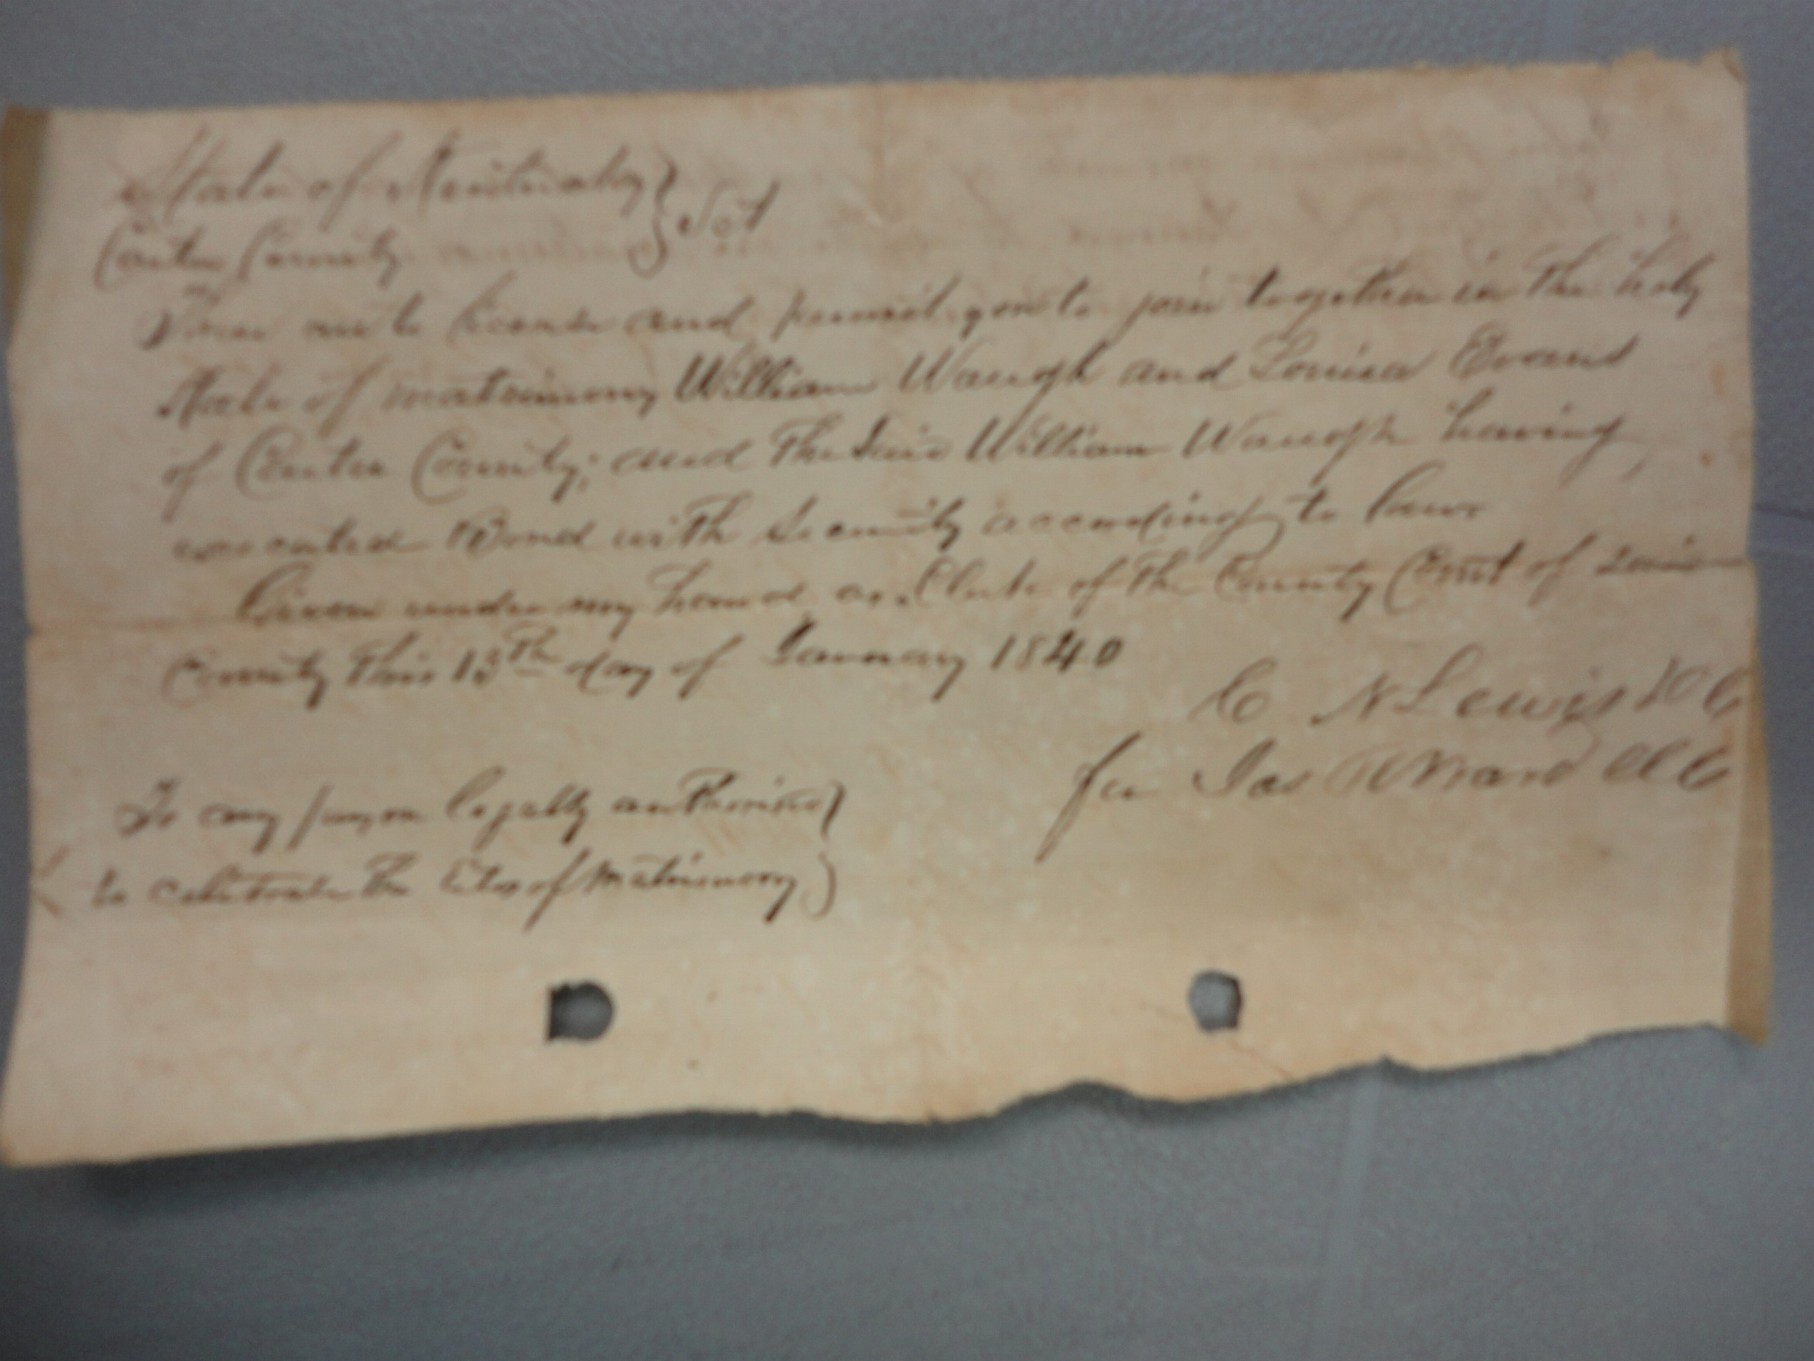 State of Kentucky } Sct
Carter County
These are to license and permit you to join together in the holy
State of matrimony William Waugh and Louisa Evans
of Carter County; and the said William Waugh having,
executed Bond with Security according to law.
Given under my hand as Clerk of the County Court of said
County this 13th day of January 1840
C N Lewis D C
for Jas R Ward Clk
To any person legally authorised }
to celebrate the rites of Matrimony )